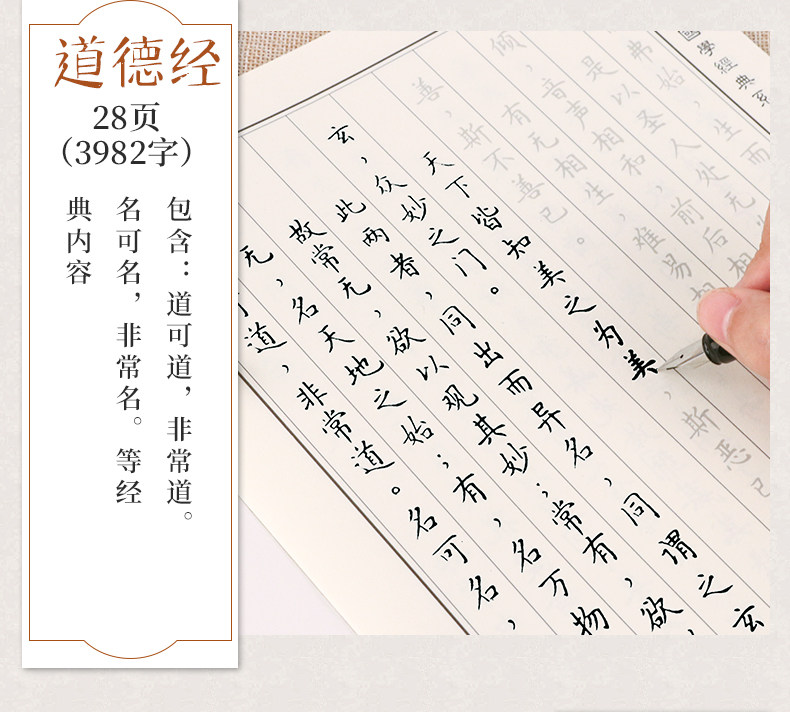 道德经
28页
（3982字）
包含：道可道，非常道。
名可名，非常名。等经
典内容
道，非常道。名可名，
无，名天地之始；有，名万物
故常无，欲以观其妙；常有，欲
此两者，同出而异名，同谓之玄
玄，众妙之门。
天下皆知美之为美，斯恶已
善，斯不善已。
有无相生，难易相
倾，音声相和，前后相
是以圣人处无
弗始，生而
國學經典系